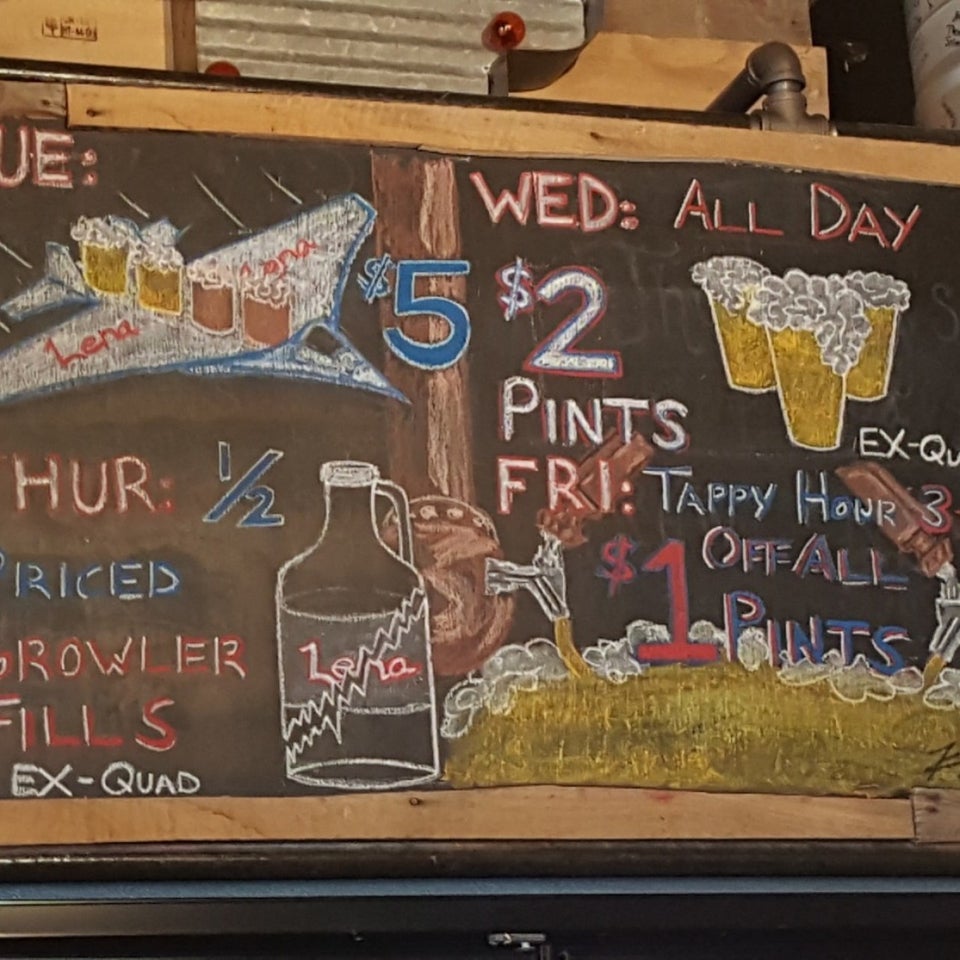 UE:
Lena
Lena
$5
WED: ALL DAY
$2
PINTS
EX-QU
THUR: 1/2
PRICED
GROWLER
FILLS
EX-QUAD
Lena
FRI: TAPPY HOUR 3-
$1 OFF ALL
PINTS